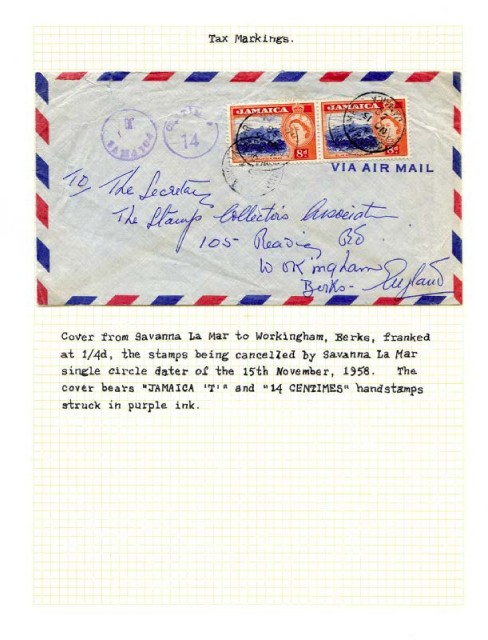 Tax Markings.
T
JAMAICA
14
JAMAICA JAMAICA
8d 8d
VIA AIR MAIL
To The Secretary
The Stamps Collectors Association
105 Reading Rd
Wokingham
Berks- England
Cover from Savanna La Mar to Workingham, Berks, franked
at 1/4d, the stamps being cancelled by Savanna La Mar
single circle dater of the 15th November, 1958. The
cover bears "JAMAICA 'T'" and "14 CENTIMES" handstamps
struck in purple ink.